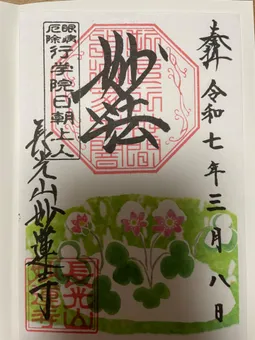 奉拝 令和七年三月八日
妙法
眼病
厄除
行学院日朝上人
長光山妙蓮寺
長光山